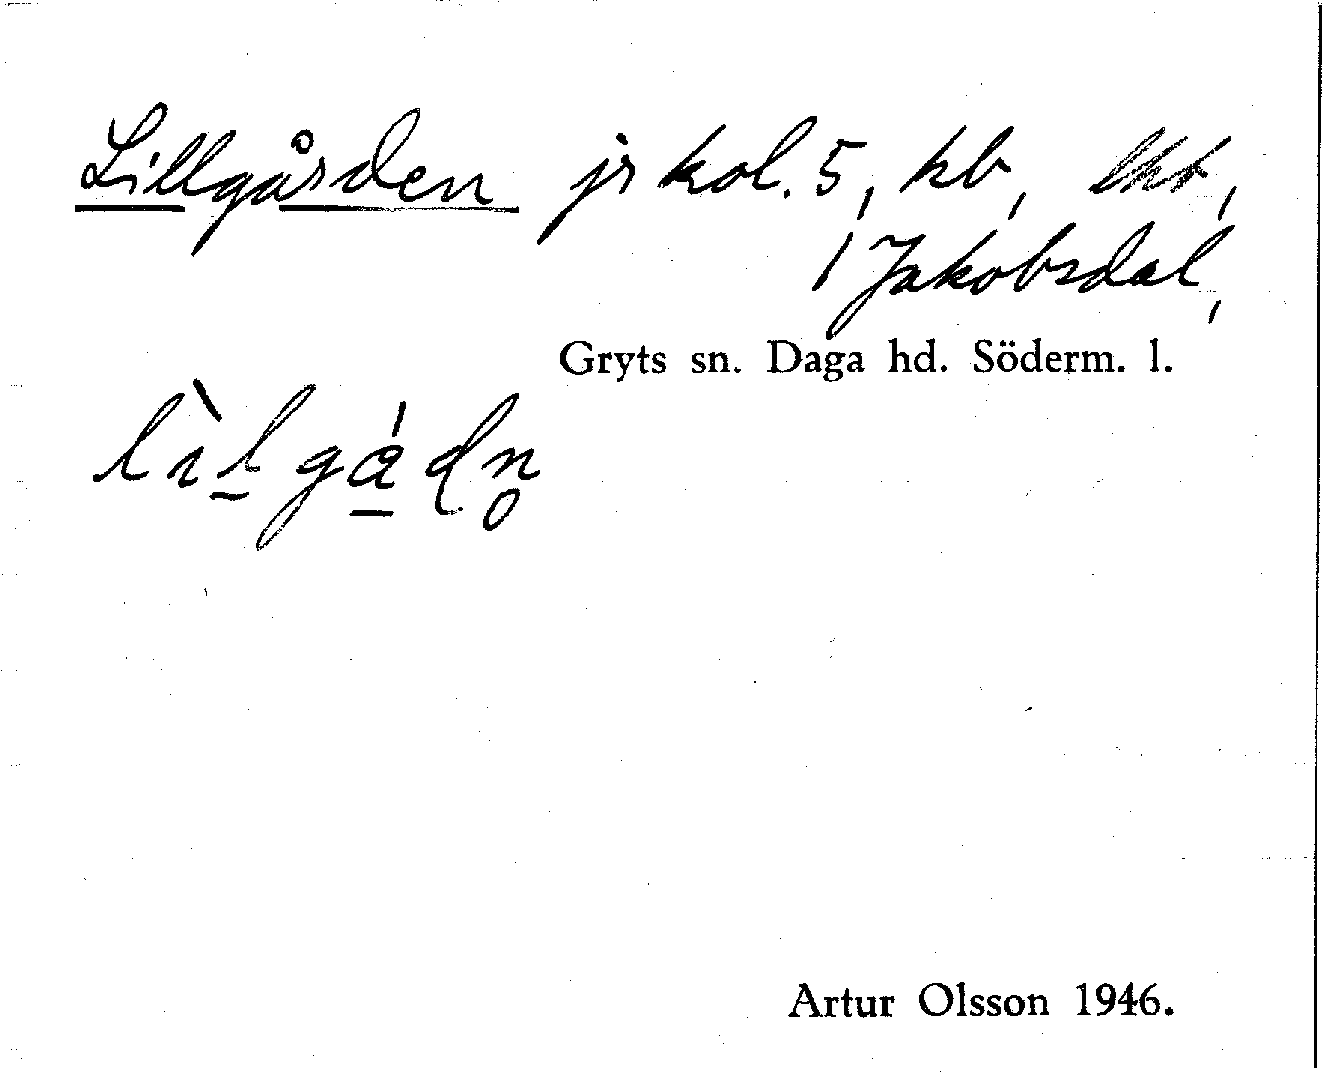 Lillgården jr kol. 5, kb,
1 Jakobsdal,
Gryts sn. Daga hd. Söderm. l.
Artur Olsson 1946.